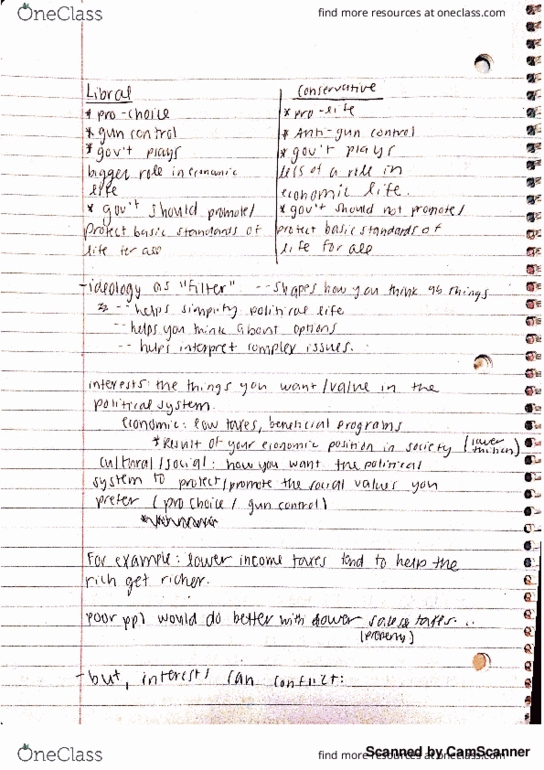 OneClass
find more resources at oneclass.com
Libral
* pro-choice
* gun control
* gov't plays
bigger role in economic
life
* gov't should promote/
protect basic standards of
life for all
Conservative
* pro-life
* Anti-gun control
* gov't plays
less of a role in
economic life.
* gov't should not promote/
protect basic standards of
life for all
-ideology as "filter" -- shapes how you think ab things
-- helps simplify political life
-- helps you think about options
-- helps interpret complex issues.
interests: the things you want/value in the
political system.
Economic: low taxes, beneficial programs
*Result of your economic position in society (lower
tuition)
Cultural/social: how you want the political
system to protect/promote the social values you
prefer (pro choice/gun control)
For example: lower income taxes tend to help the
rich get richer.
poor ppl would do better with lower sales taxes...
(property)
-but, interests can conflict:
OneClass
find more resources at oneclass.com
Scanned by CamScanner